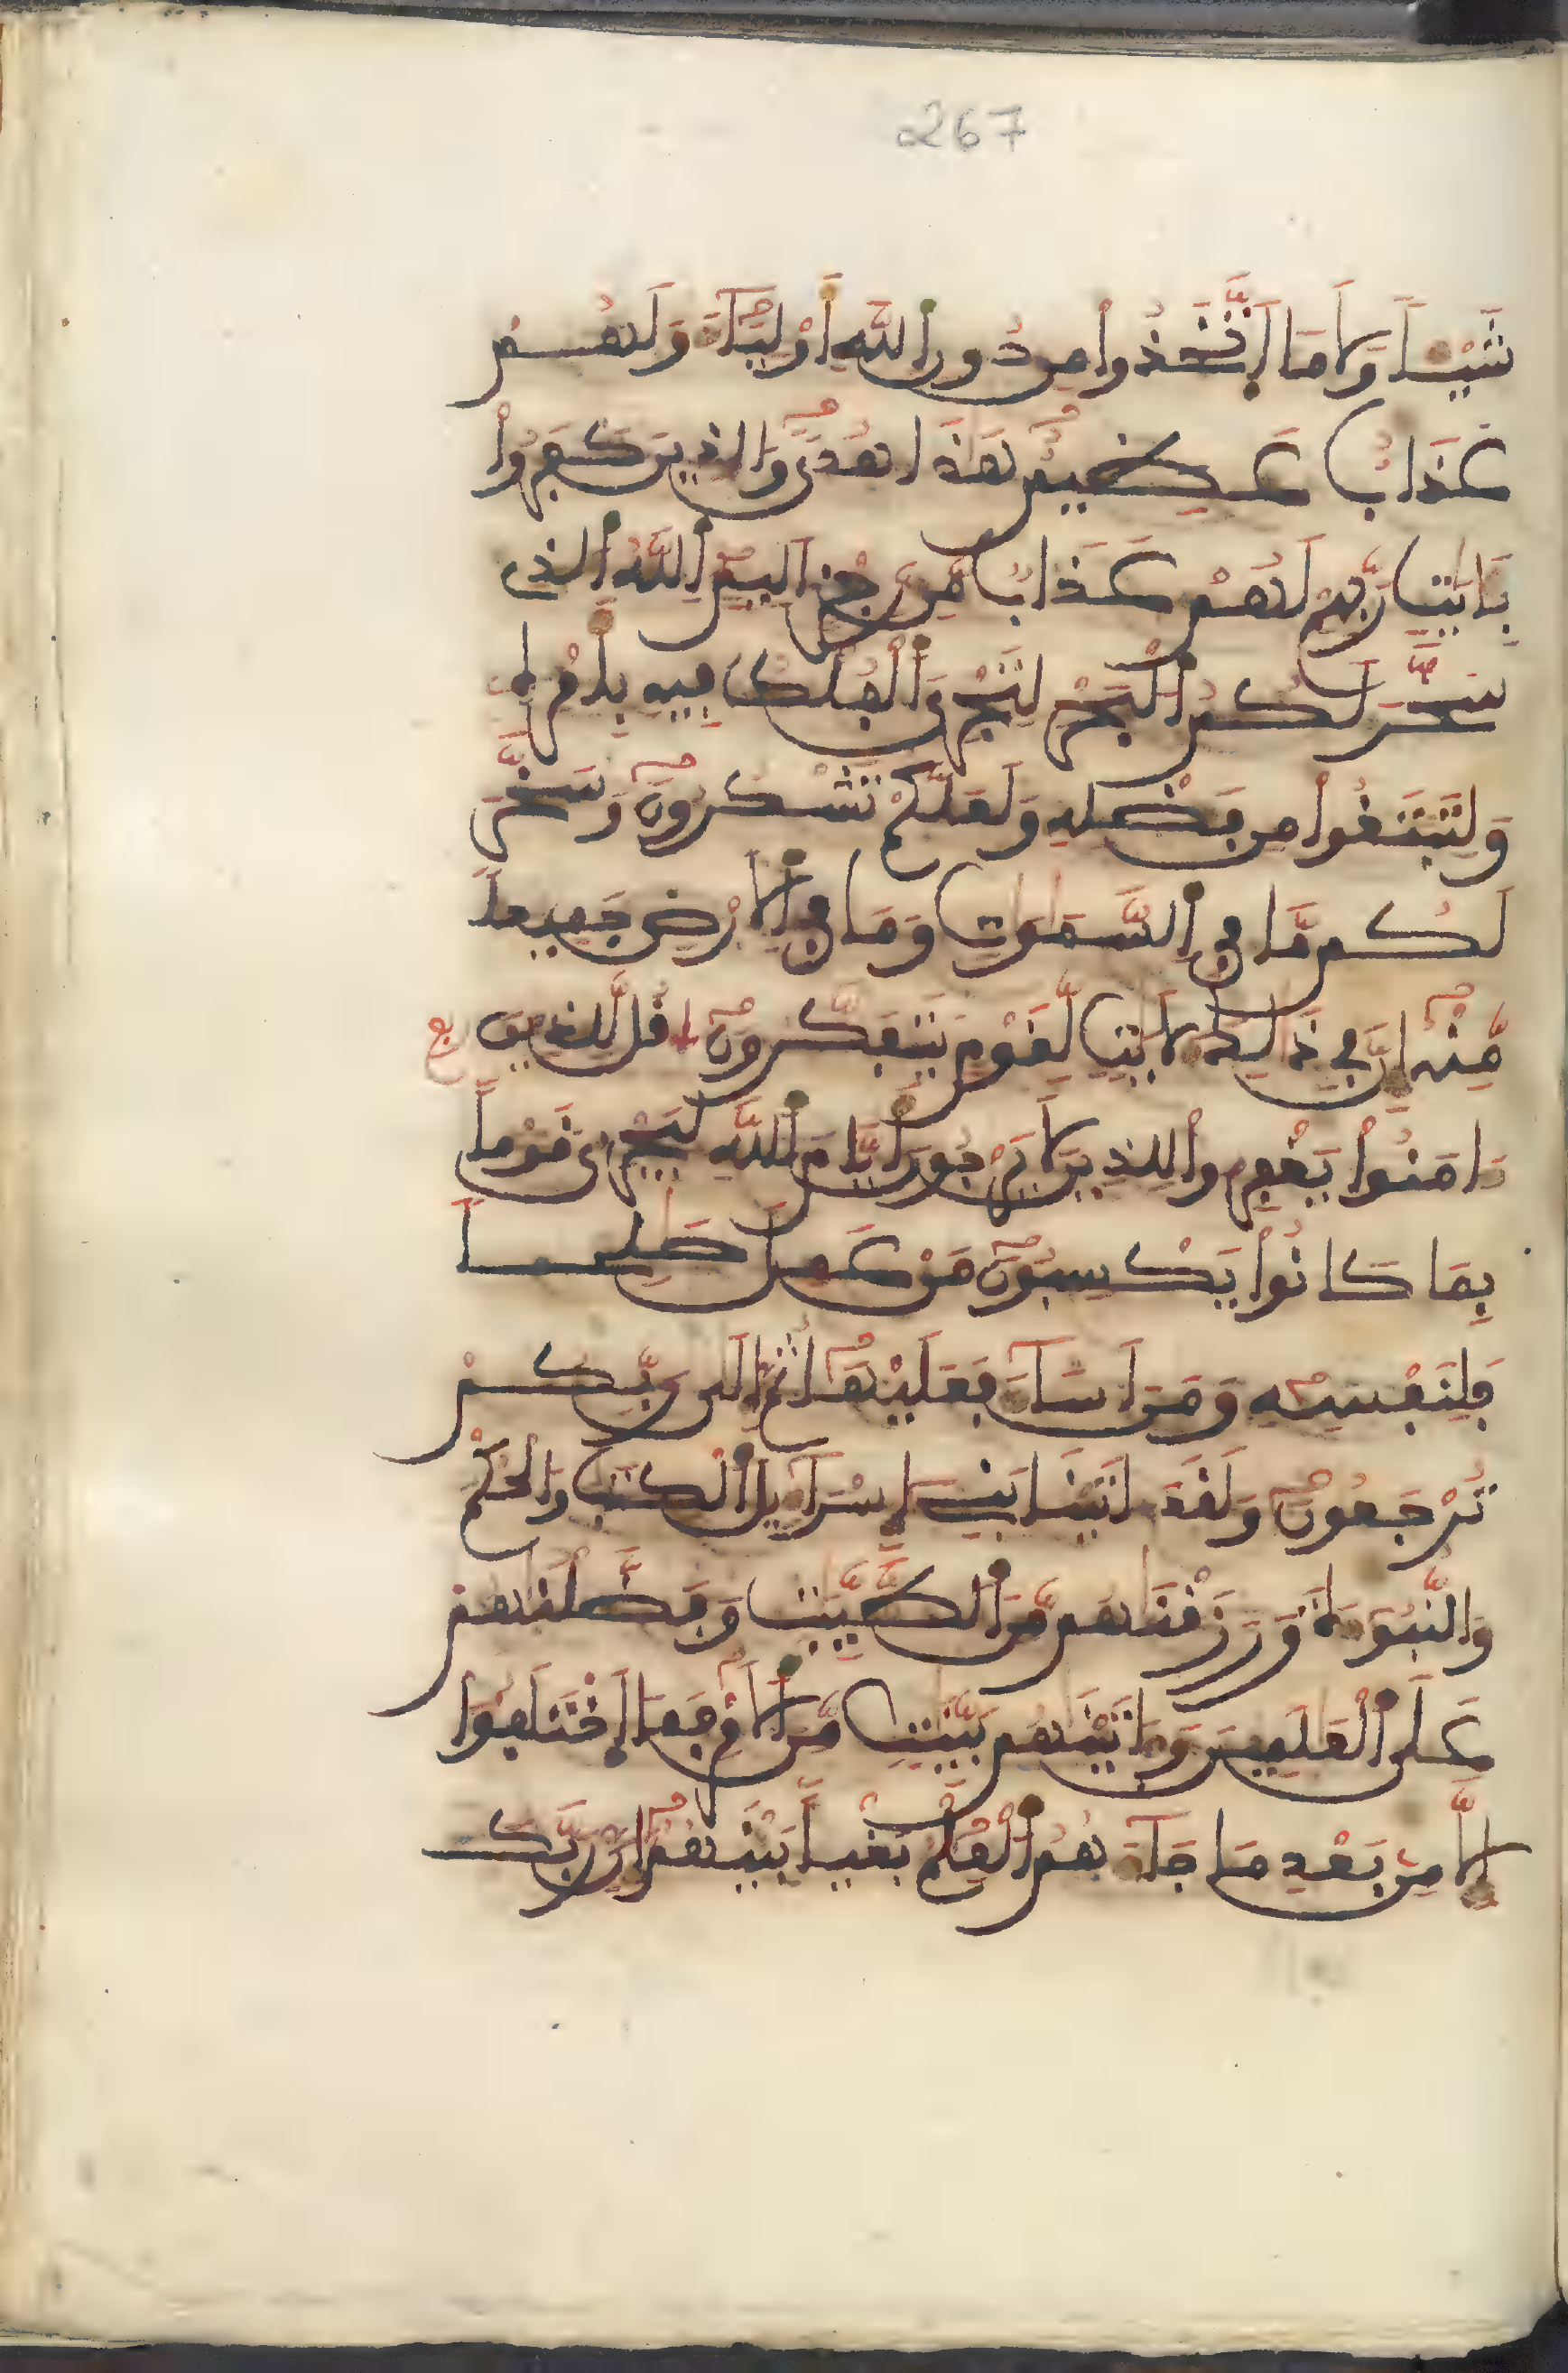 267
شَيْـًٔا وَلَا مَا اَتَّخَذُوا مِن دُونِ اِ۬للَّهِ أَوْلِيَآءَ وَلَهُمْ
عَذَابٌ عَظِيمٌ هَٰذَا هُدىً وَالذِينَ كَفَرُوا
بِـَٔايَٰتِ رَبِّهِمْ لَهُمْ عَذَابٌ مِّن رِّجْزٍ اَلِيمٍ اِ۬للَّهُ اُ۬لذِى
سَخَّرَ لَكُمُ اُ۬لْبَحْرَ لِتَجْرِىَ اَ۬لْفُلْكُ فِيهِ بِأَمْرِهِ
وَلِتَبْتَغُوا مِن فَضْلِهِ وَلَعَلَّكُمْ تَشْكُرُونَ وَسَخَّرَ
لَكُم مَّا فِى اِ۬لسَّمَٰوَٰتِ وَمَا فِى اِ۬لَارْضِ جَمِيعاً
مِّنْهُ إِنَّ فِى ذَٰلِكَ لَأيَٰتٍ لِّقَوْمٍ يَتَفَكَّرُونَ قُل لِّلذِينَ ع
ءَامَنُوا يَغْفِرُوا لِلذِينَ لَا يَرْجُونَ أَيَّامَ اَ۬للَّهِ لِيَجْزِىَ قَوْماً
بِمَا كَانُوا يَكْسِبُونَ مَنْ عَمِلَ صَٰلِحاً
فَلِنَفْسِهِ وَمَنَ اَسَآءَ فَعَلَيْهَا ثُمَّ إِلَىٰ رَبِّكُمْ
تُرْجَعُونَ وَلَقَدَ اٰتَيْنَا بَنِى إِسْرَآءِيلَ اَ۬لْكِتَٰبَ وَالْحُكْمَ
وَالنُّبُوٓءَةَ وَرَزَقْنَٰهُم مِّنَ اَ۬لطَّيِّبَٰتِ وَفَضَّلْنَٰهُمْ
عَلَى اَ۬لْعَٰلَمِينَ وَءَاتَيْنَٰهُم بَيِّنَٰتٍ مِّنَ اَ۬لَامْرِ فَمَا اَخْتَلَفُوا
إِلَّا مِن بَعْدِ مَا جَآءَهُمُ اُ۬لْعِلْمُ بَغْياً بَيْنَهُمُ إِنَّ رَبَّكَ